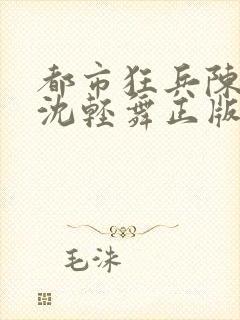 都市狂兵陳
沈輕舞正版
毛洙